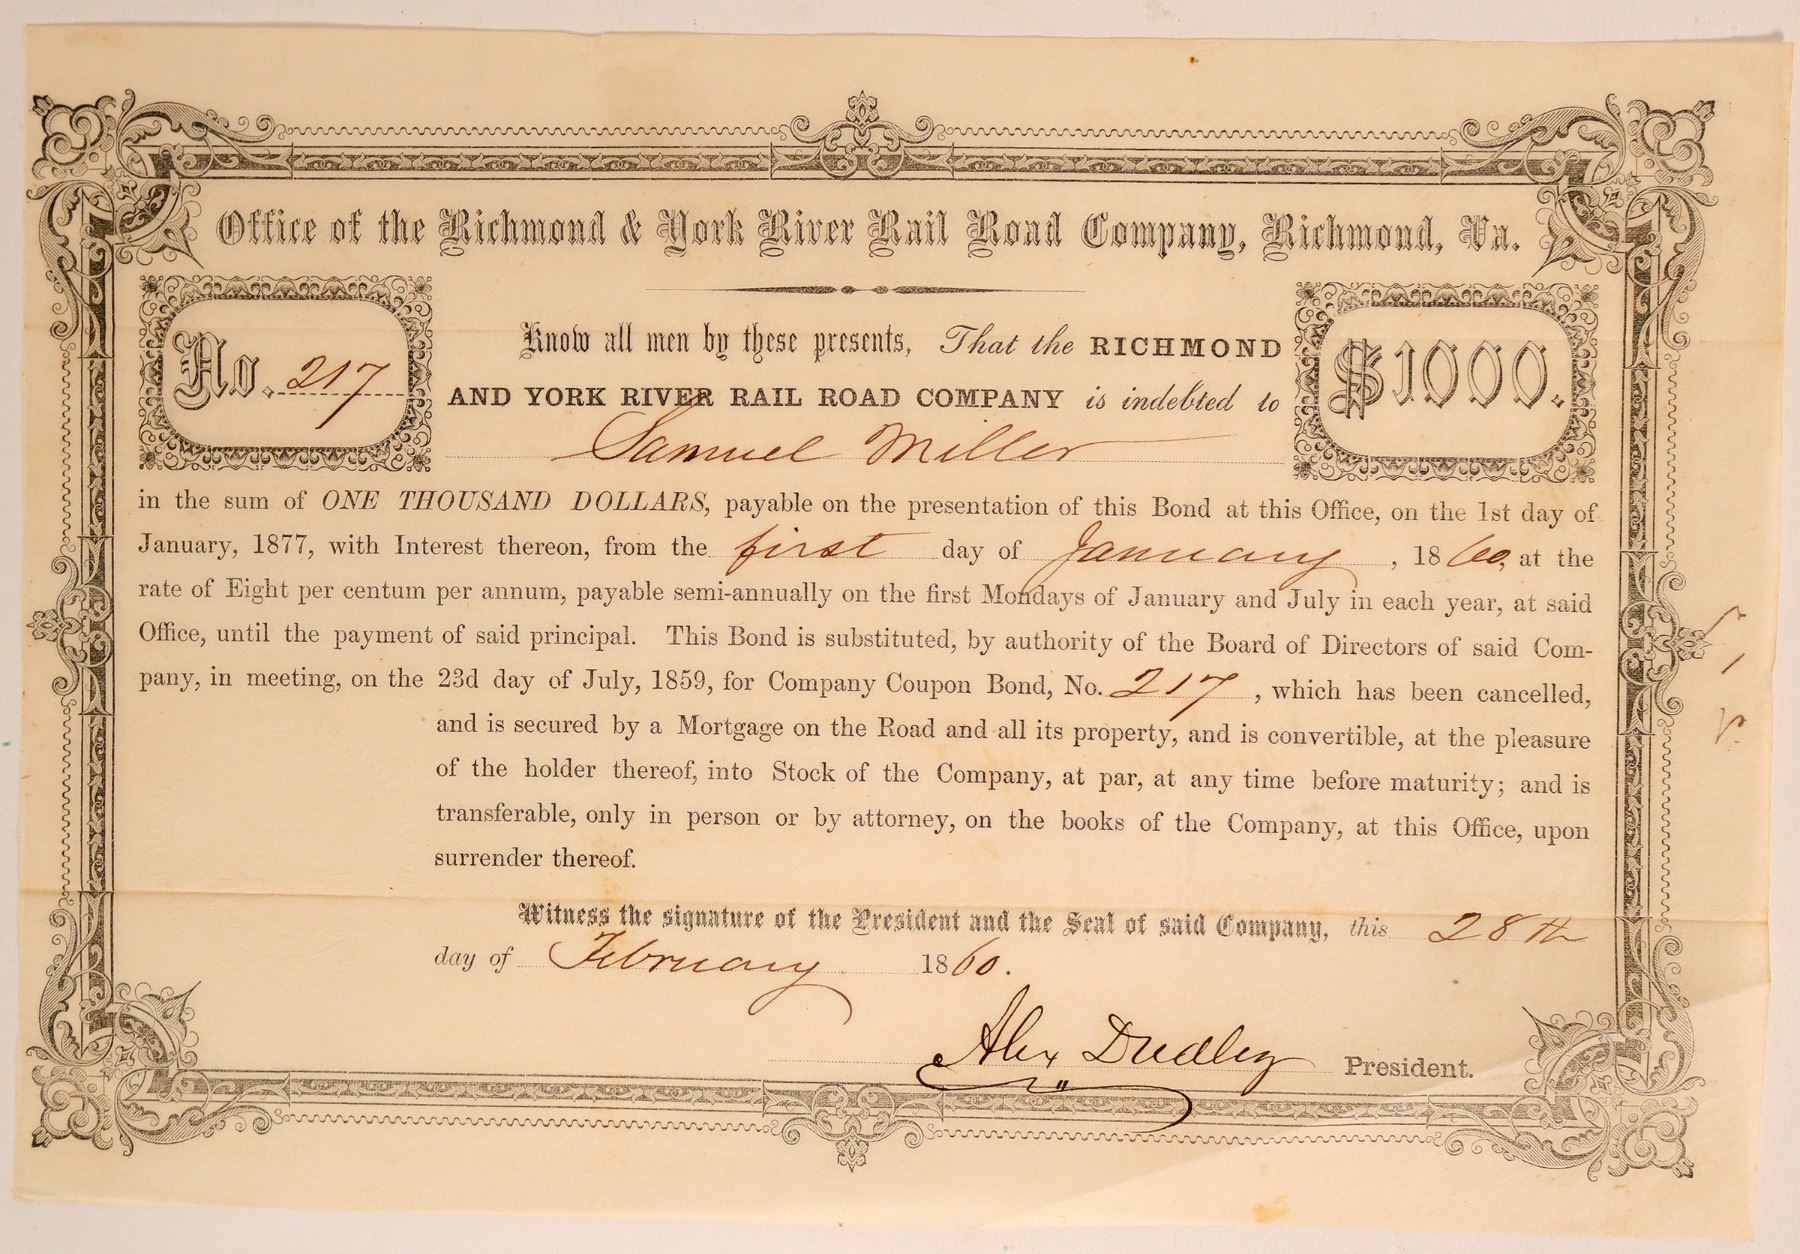 Office of the Richmond & York River Rail Road Company, Richmond, Va.
No. 217
Know all men by these presents, That the RICHMOND
$1000.
AND YORK RIVER RAIL ROAD COMPANY is indebted to
Samuel Miller
in the sum of ONE THOUSAND DOLLARS, payable on the presentation of this Bond at this Office, on the 1st day of
January, 1877, with Interest thereon, from the first day of January, 1860, at the
rate of Eight per centum per annum, payable semi-annually on the first Mondays of January and July in each year, at said
Office, until the payment of said principal. This Bond is substituted, by authority of the Board of Directors of said Com-
pany, in meeting, on the 23d day of July, 1859, for Company Coupon Bond, No. 217, which has been cancelled,
and is secured by a Mortgage on the Road and all its property, and is convertible, at the pleasure
of the holder thereof, into Stock of the Company, at par, at any time before maturity; and is
transferable, only in person or by attorney, on the books of the Company, at this Office, upon
surrender thereof.
Witness the signature of the President and the Seal of said Company, this 28th
day of February 1860.
Alex Dudley President.